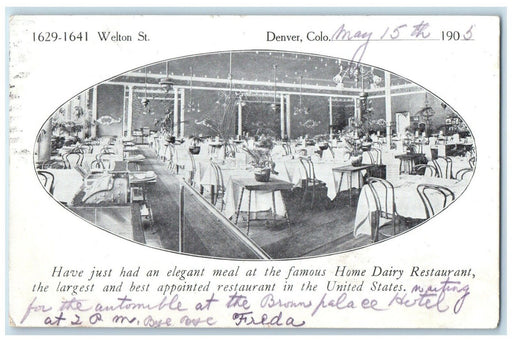 1629-1641 Welton St. Denver, Colo. May 15th 1905
Have just had an elegant meal at the famous Home Dairy Restaurant,
the largest and best appointed restaurant in the United States. waiting
for the automible at the Brown palace Hotel
at 2 P m. Bye Bye Freda